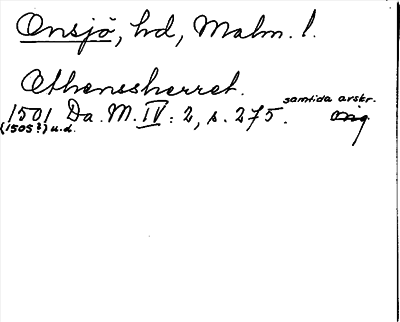 Onsjö, hd, Malm. l.
Othenssherret.
samtida avskr.
1501 Da. M. IV: 2, s. 275. Orig
(1505?) u.d.